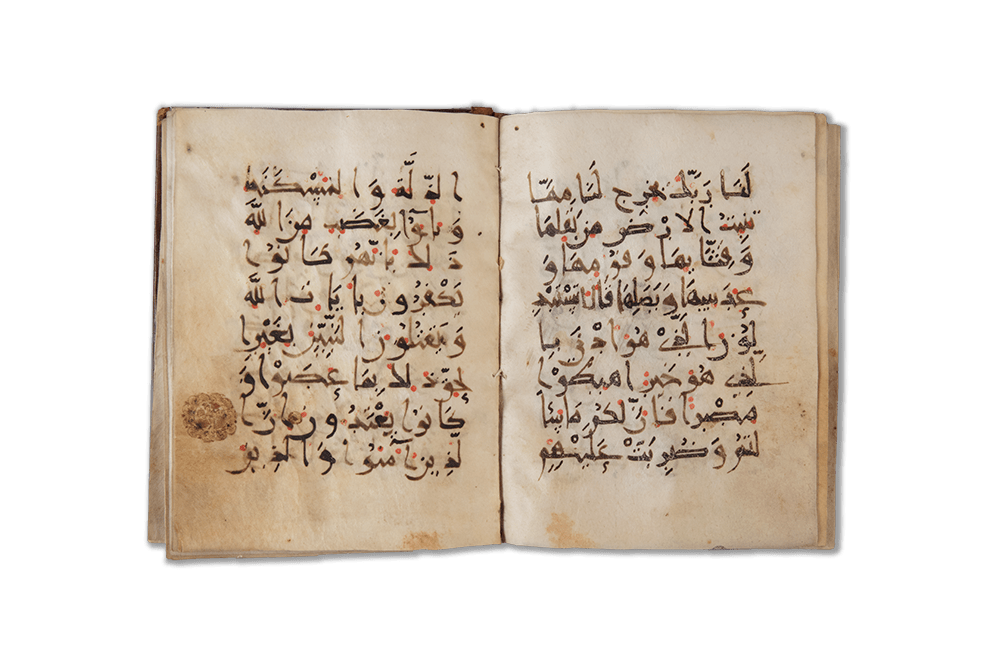 لنا ربك يخرج لنا مما
تنبت الارض من بقلها
وقثائها وفومها و
عدسها وبصلها قال أتستبد
لون الذي هو ادنى با
لذي هو خير اهبطوا
مصرا فان لكم ما سأ
لتم وضربت عليهم
الذلة والمسكنة
وباءوا بغضب من الله
ذلك بانهم كانوا
يكفرون بايات الله
ويقتلون النبيين بغير ا
لحق ذلك بما عصوا و
كانوا يعتدون إن ا
لذين آمنوا والذين